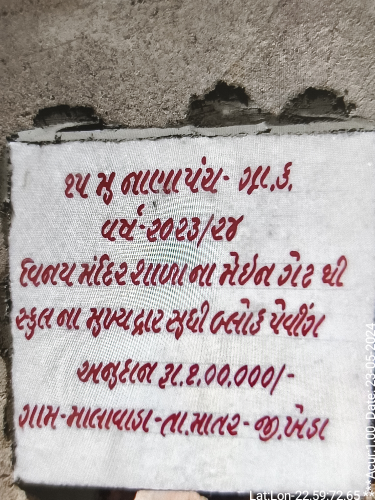 ૧૫ મુ નાણાપંચ- ગ્રા.ક.
વર્ષ-૨૦૨૩/૨૪
વિનય મંદિર શાળા ના મેઇન ગેટ થી
સ્કુલ ના મુખ્ય દ્વાર સુધી બ્લોક પેવીંગ
અનુદાન રૂા.૨,૦૦,૦૦૦/-
ગામ-માલાવાડા-તા.માતર-જી.ખેડા
Lat:Lon-22.59:72.65
Acur:1.00 Date: 23-05-2024